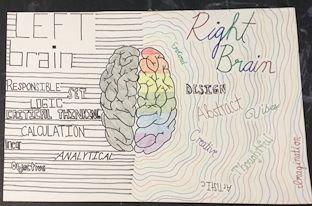 LEFT
brain
RESPONSIBLE
SET
LOGIC
CRITICAL THINKING
CALCULATION
ANALYTICAL
Objective
Right
Brain
DESIGN
Abstract
Creative
Thoughtful
Artistic
Imagination